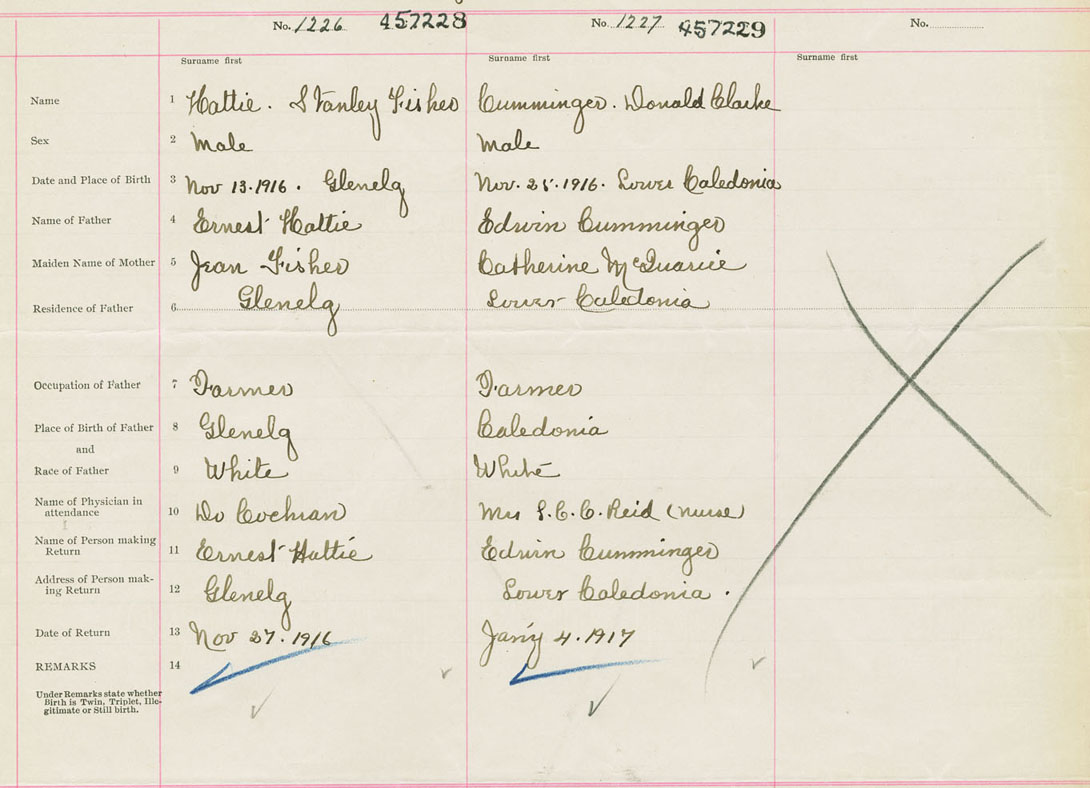 No. 1226 457228 No. 1227 457229 No.
Surname first Surname first Surname first
Name 1 Hattie. Stanley Fisher Cumminger. Donald Clarke
Sex 2 Male Male
Date and Place of Birth 3 Nov 13. 1916. Glenelg Nov. 25. 1916. Lower Caledonia
Name of Father 4 Ernest Hattie Edwin Cumminger
Maiden Name of Mother 5 Jean Fisher Catherine McQuarie
Residence of Father 6 Glenelg Lower Caledonia
Occupation of Father 7 Farmer Farmer
Place of Birth of Father 8 Glenelg Caledonia
and
Race of Father 9 White White
Name of Physician in
attendance 10 Dr Cochran Mrs S. C. C. Reid (nurse)
Name of Person making
Return 11 Ernest Hattie Edwin Cumminger
Address of Person mak-
ing Return 12 Glenelg Lower Caledonia.
Date of Return 13 Nov 27. 1916 Jan'y 4. 1917
REMARKS 14
Under Remarks state whether
Birth is Twin, Triplet, Ille-
gitimate or Still birth.